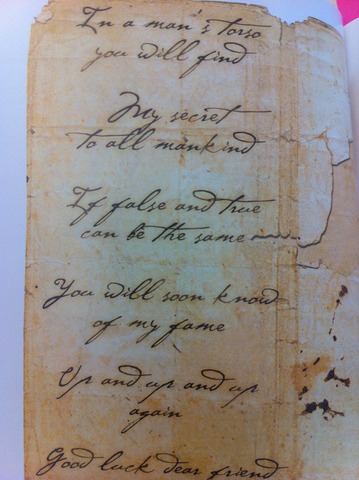 In a man's torso
you will find
My secret
to all mankind
If false and true
can be the same
You will soon know
of my fame
Up and up and up
again
Good luck dear friend